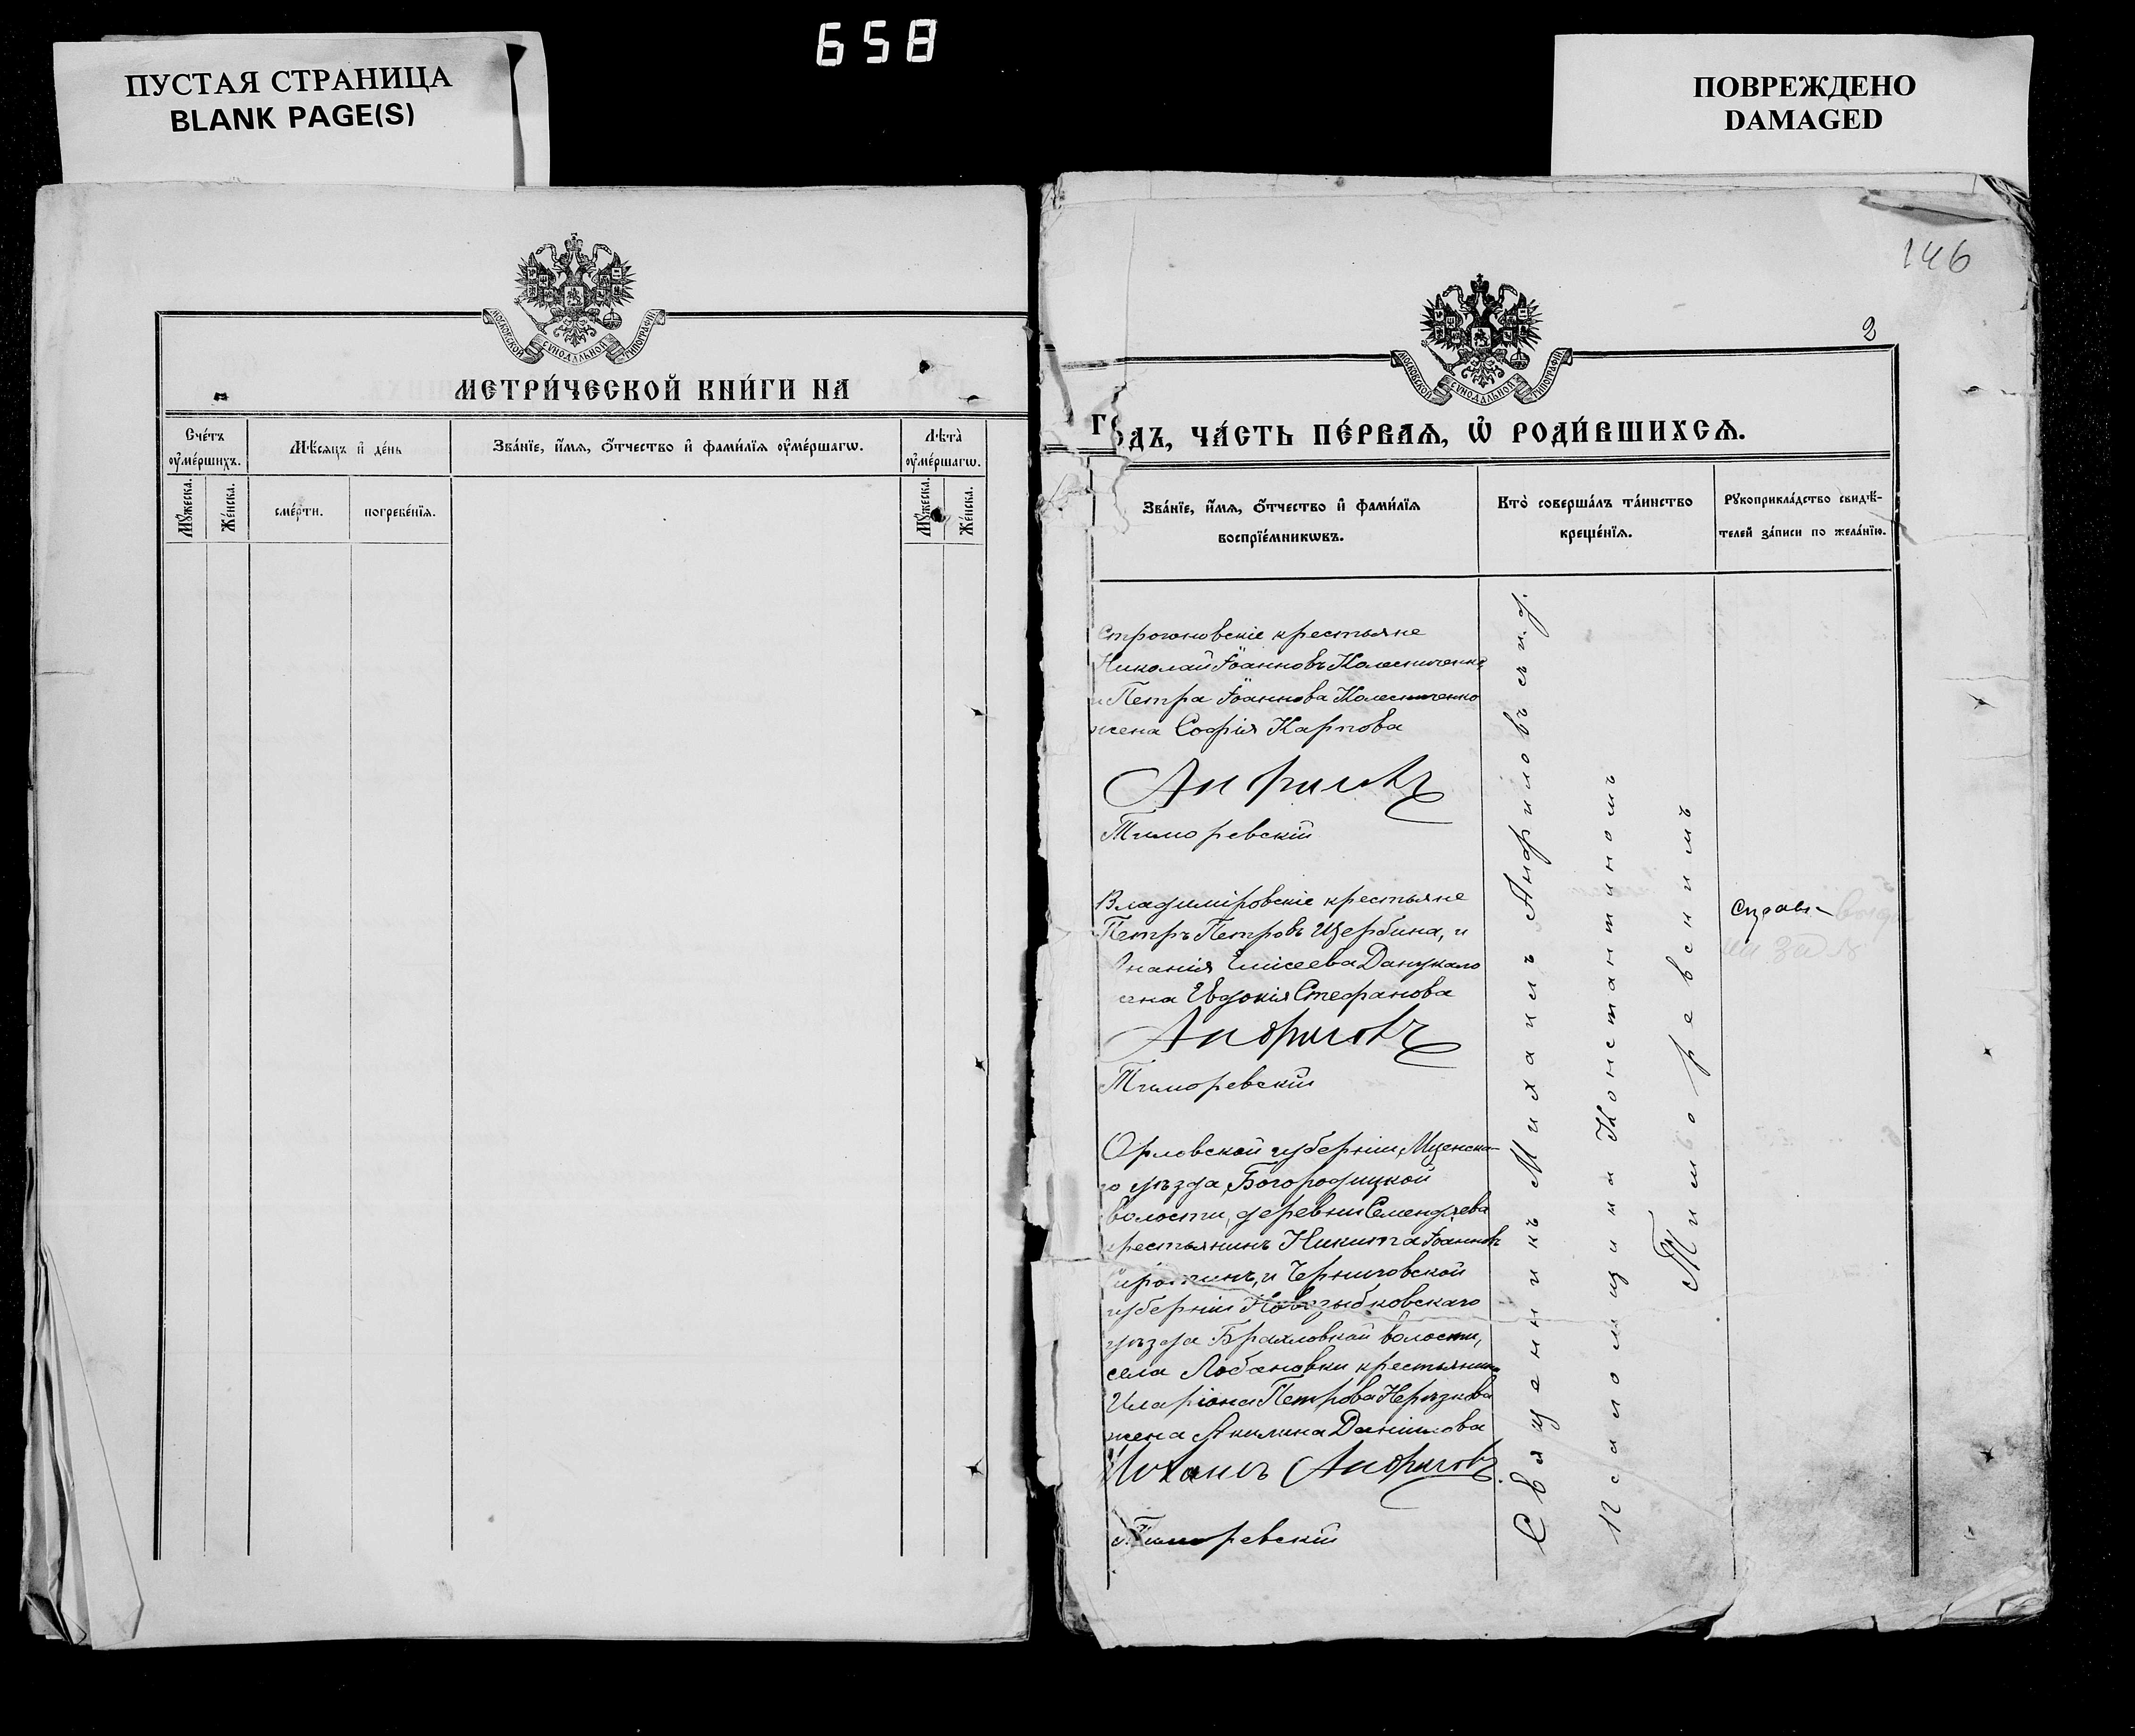 658
ПУСТАЯ СТРАНИЦА
BLANK PAGE(S)
ПОВРЕЖДЕНО
DAMAGED
МОСКОВСКОЙ СѴНОДАЛЬНОЙ ТИПОГРАФІИ
МЕТРИ́ЧЕСКОЙ КНИ́ГИ НА
Сче́тъ ᲂу҆ме́ршихъ.
Мѣ́сяцъ и҆ де́нь
Зва́нїе, и҆́мѧ, ѻ҆́тчество и҆ фами́лїѧ ᲂу҆ме́ршагѡ.
Лѣта̀ ᲂу҆ме́ршагѡ.
Мꙋ́жеска.
Же́нска.
сме́рти.
погребе́нїѧ.
Мꙋ́жеска.
Же́нска.
146
2
МОСКОВСКОЙ СѴНОДАЛЬНОЙ ТИПОГРАФІИ
ГО́ДЪ, ЧА́СТЬ ПЕ́РВАѦ, Ѽ РОДИ́ВШИХСѦ.
Зва́нїе, и҆́мѧ, ѻ҆́тчество и҆ фами́лїѧ
воспрїе́мникѡвъ.
Кто̀ соверша́лъ та́инство
креще́нїѧ.
Рꙋкоприкла́дство свидѣ́-
телей за́писи по жела́нїю.
Строгоновскіе крестьяне
Николай Іоанновъ Колесниченко
и Петра Іоаннова Колесниченко
жена Софія Карпова
Анфиловъ
Тиморевскій
Владиміровскіе крестьяне
Петръ Петровъ Щербина, и
Ананія Елисеева Данукало
жена Евдокія Стефанова
Анфиловъ
Тиморевскій
Орловской губерніи, Мценска-
го уѣзда, Богородицкой
волости, деревни Семендяева
крестьянинъ Никита Іоанновъ
Сиротинъ, и Черниговской
губерніи Новозыбковскаго
уѣзда Брахловской волости,
села Лобановки крестьянина
Иларіона Петрова
жена Акилина Даніилова
Михаилъ Анфиловъ
Тиморевскій
Священникъ Михаилъ Анфиловъ съ и. д.
Псаломщика Константиномъ
Тиморевскимъ
Справ.